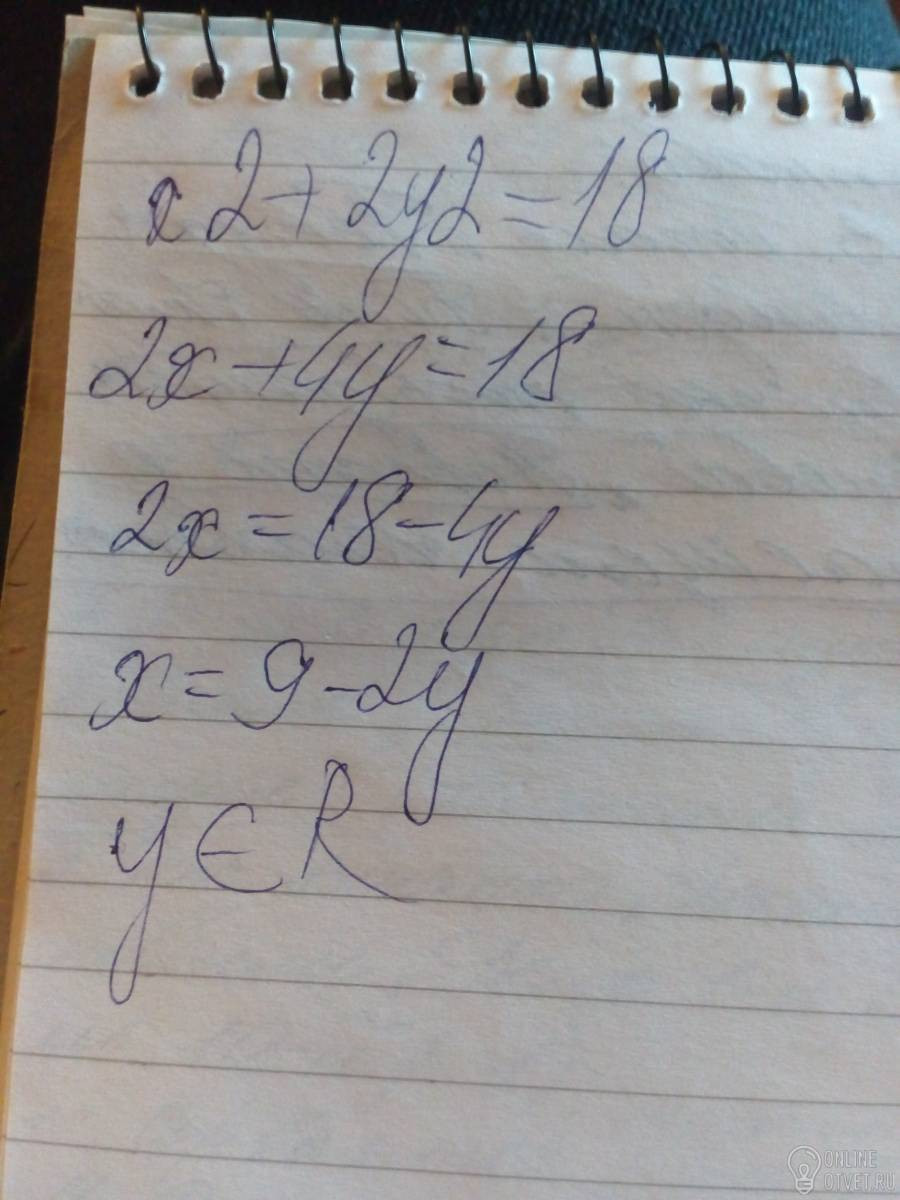 x2+2y2=18
2x+4y=18
2x=18-4y
x=9-2y
y∈R
ONLINE
OTVET.RU